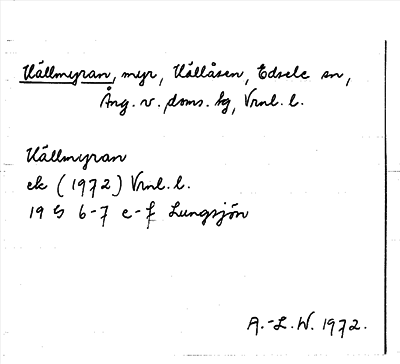 Källmyran, myr, Källåsen, Edsele sn,
Ång. v. doms. hg, Vrnl. l.
Källmyran
ek (1972) Vrnl. l.
19 G 6-7 e-f Lungsjön
A.-L. W. 1972.